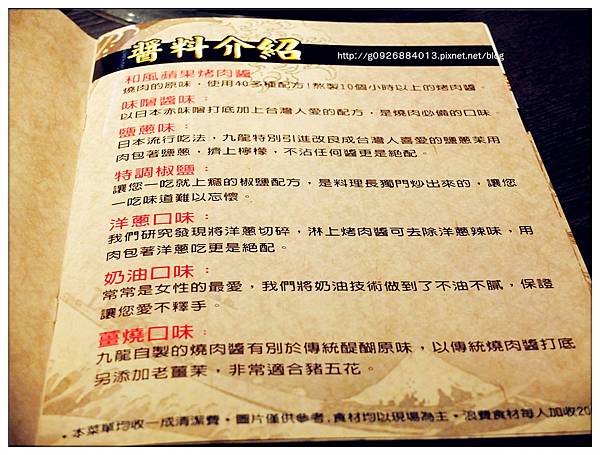 醬料介紹
http://g0926884013.pixnet.net/blog
和風蘋果烤肉醬
燒肉的原味，使用40多種配方!熬製10個小時以上的烤肉醬。
味噌醬味：
以日本赤味噌打底加上台灣人愛的配方，是燒肉必備的口味。
鹽蔥味：
日本流行吃法，九龍特別引進改良成台灣人喜愛的鹽蔥茉用
肉包著鹽蔥，擠上檸檬，不沾任何醬更是絕配。
特調椒鹽：
讓您一吃就上癮的椒鹽配方，是料理長獨門炒出來的，讓您
一吃味道難以忘懷。
洋蔥口味：
我們研究發現將洋蔥切碎，淋上烤肉醬可去除洋蔥辣味，用
肉包著洋蔥吃更是絕配。
奶油口味：
常常是女性的最愛，我們將奶油技術做到了不油不膩，保證
讓您愛不釋手。
薑燒口味：
九龍自製的燒肉醬有別於傳統醍醐原味，以傳統燒肉醬打底
另添加老薑茉，非常適合豬五花。
・本菜單均收一成清潔費・圖片僅供參考,食材均以現場為主・浪費食材每人加收20